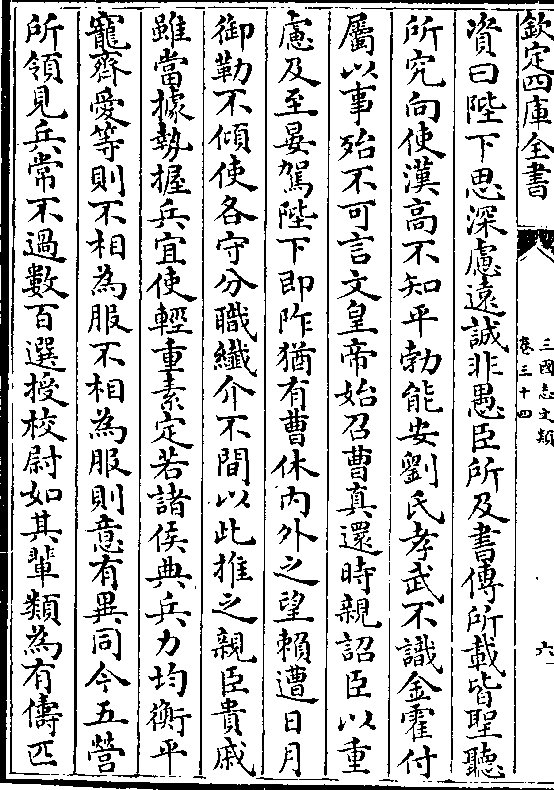 欽定四庫全書
三國志文類
卷三十四
六
資曰陛下思深慮遠誠非愚臣所及書傳所載皆聖聽
所究向使漢高不知平勃能安劉氏孝武不識金霍付
屬以事殆不可言文皇帝始召曹真還時親詔臣以重
慮及至晏駕陛下即阼猶有曹休內外之望賴遭日月
御勒不傾使各守分職纎介不間以此推之親臣貴戚
雖當據勢握兵宜使輕重素定若諸侯典兵力均衡平
寵齊愛等則不相為服不相為服則意有異同今五營
所領見兵常不過數百選授校尉如其輩類為有儔匹